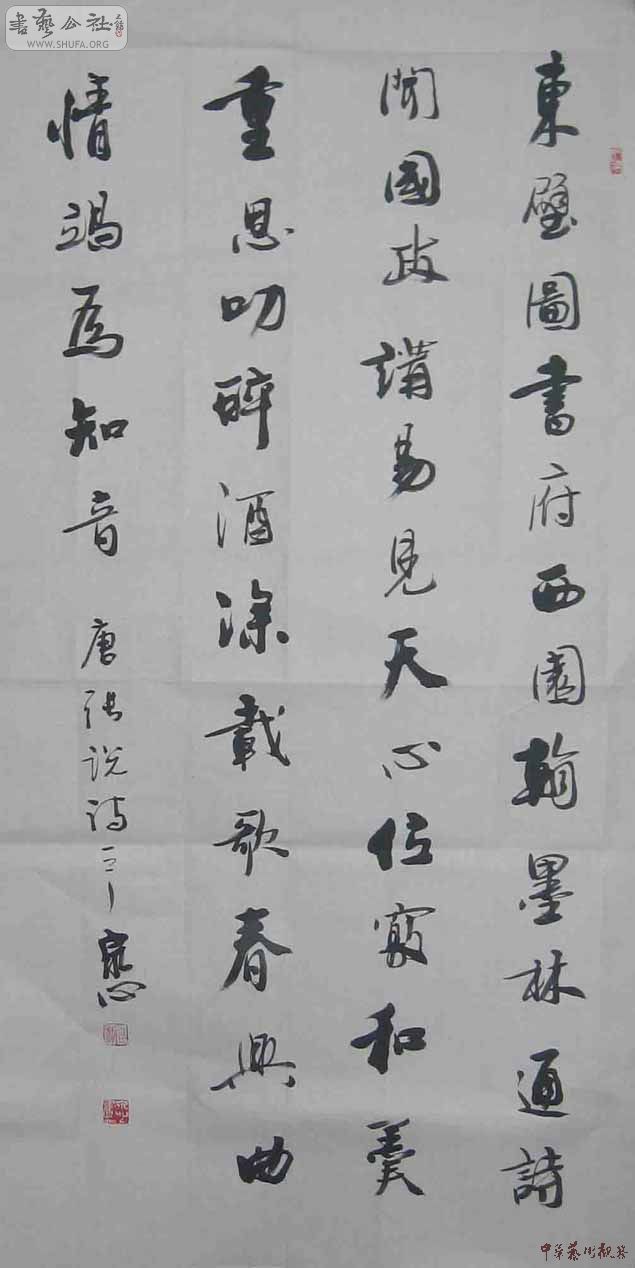 書藝公社
WWW.SHUFA.ORG
東壁圖書府西園翰墨林通詩
聞國政講易見天心位竊和羹
重恩叨醉酒深載歌春興曲
情竭為知音 唐張説詩一首